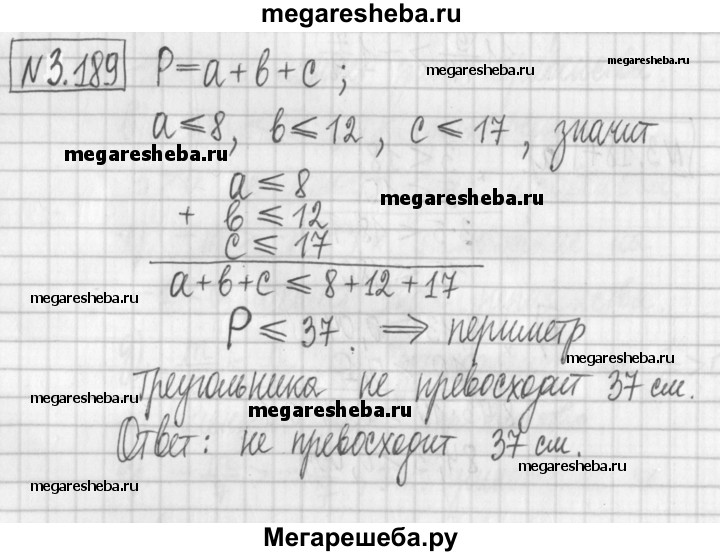 megaresheba.ru
№3.189 P=a+b+c;
megaresheba.ru
megaresheba.ru
a≤8, b≤12, c≤17, значит
megaresheba.ru
a≤8
megaresheba.ru
+ b≤12
c≤17
a+b+c≤8+12+17
megaresheba.ru
megaresheba.ru
P≤37. ⟹ периметр
megaresheba.ru
треугольника не превосходит 37 см.
megaresheba.ru
megaresheba.ru
Ответ: не превосходит 37 см.
megaresheba.ru
megaresheba.ru
Мегарешеба.ру